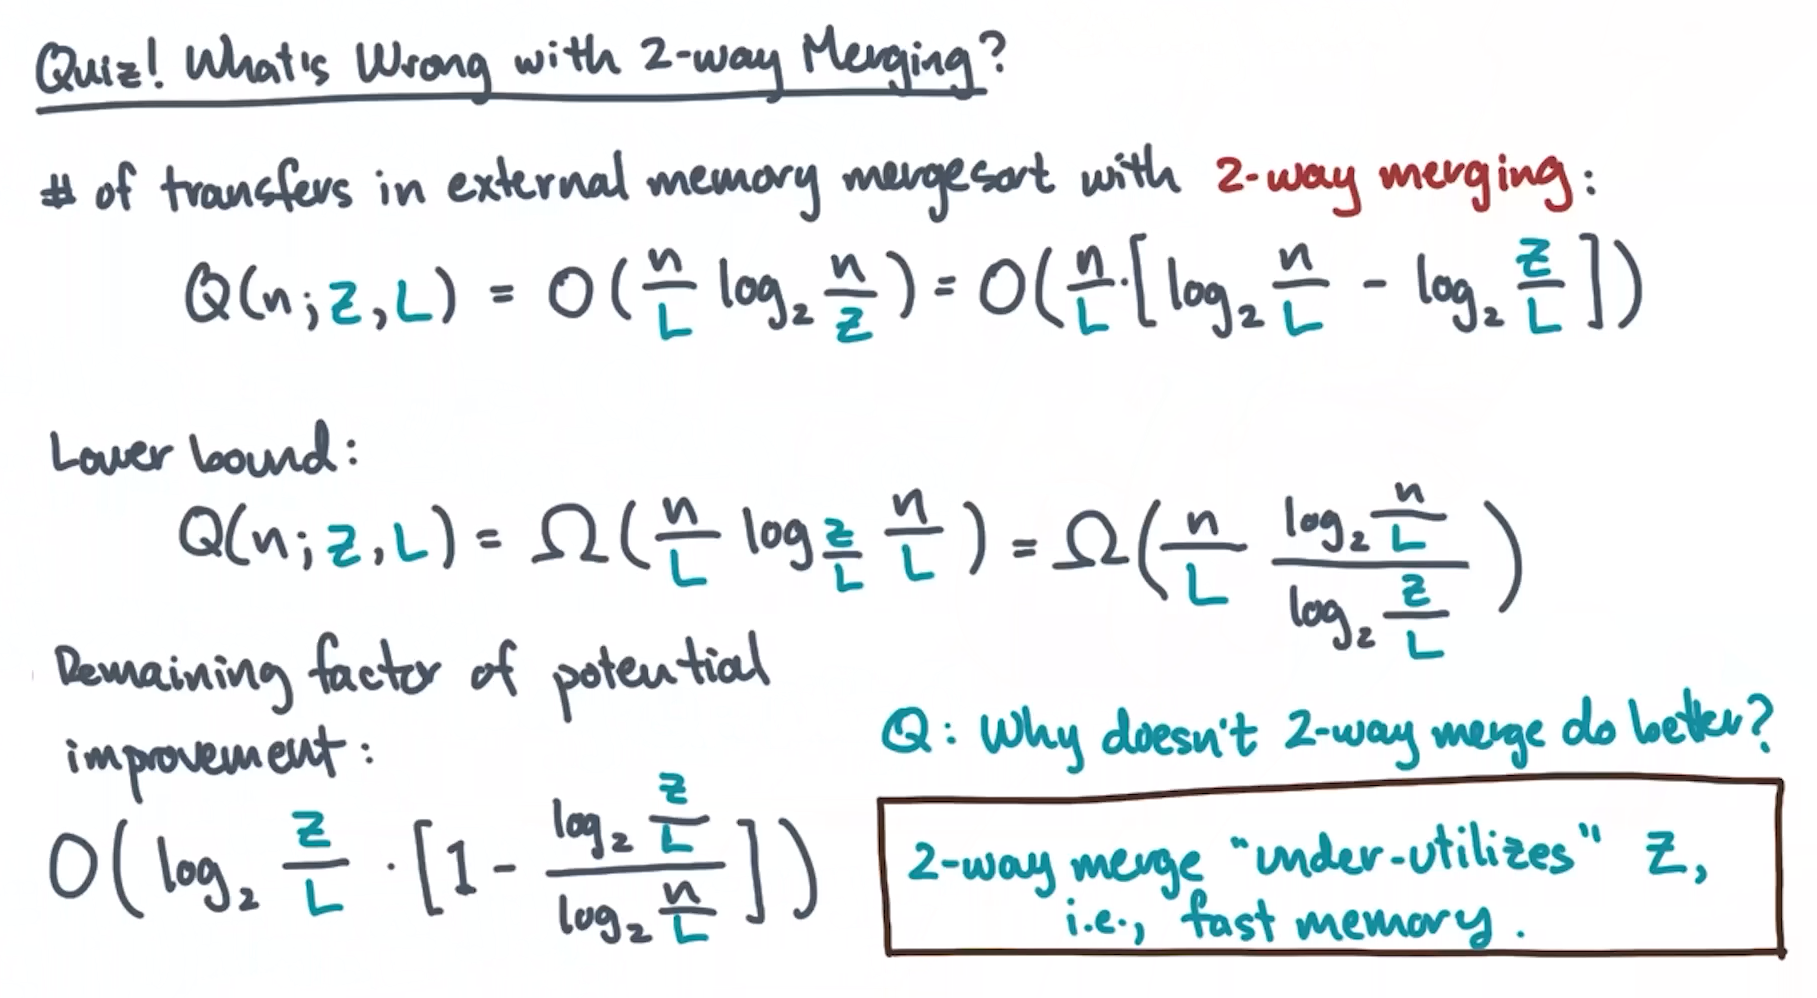 Quiz! What's Wrong with 2-way Merging?
# of transfers in external memory mergesort with 2-way merging:
Q(n; Z, L) = O(n/L log₂ n/Z) = O(n/L · [log₂ n/L - log₂ Z/L])
Lower bound:
Q(n; Z, L) = Ω(n/L log_{Z/L} n/L) = Ω(n/L (log₂ n/L)/(log₂ Z/L))
Remaining factor of potential
improvement:
O(log₂ Z/L · [1 - (log₂ Z/L)/(log₂ n/L)])
Q: Why doesn't 2-way merge do better?
2-way merge "under-utilizes" Z,
i.e., fast memory.